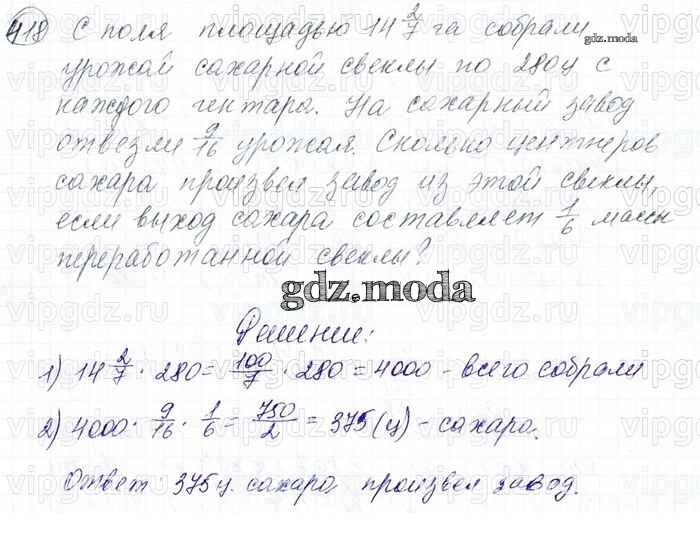 418 С поля площадью 14 2/7 га собрали
gdz.moda
урожай сахарной свеклы по 280ц с
каждого гектара. На сахарный завод
отвезли 9/16 урожая. Сколько центнеров
сахара произвел завод из этой свеклы,
если выход сахара составляет 1/6 массы
переработанной свеклы?
gdz.moda
Решение:
1) 14 2/7 · 280 = 100/7 · 280 = 4000 - всего собрали
2) 4000 · 9/16 · 1/6 = 750/2 = 375 (ц) - сахара.
Ответ: 375ц. сахара произвел завод.
vipgdz.ru